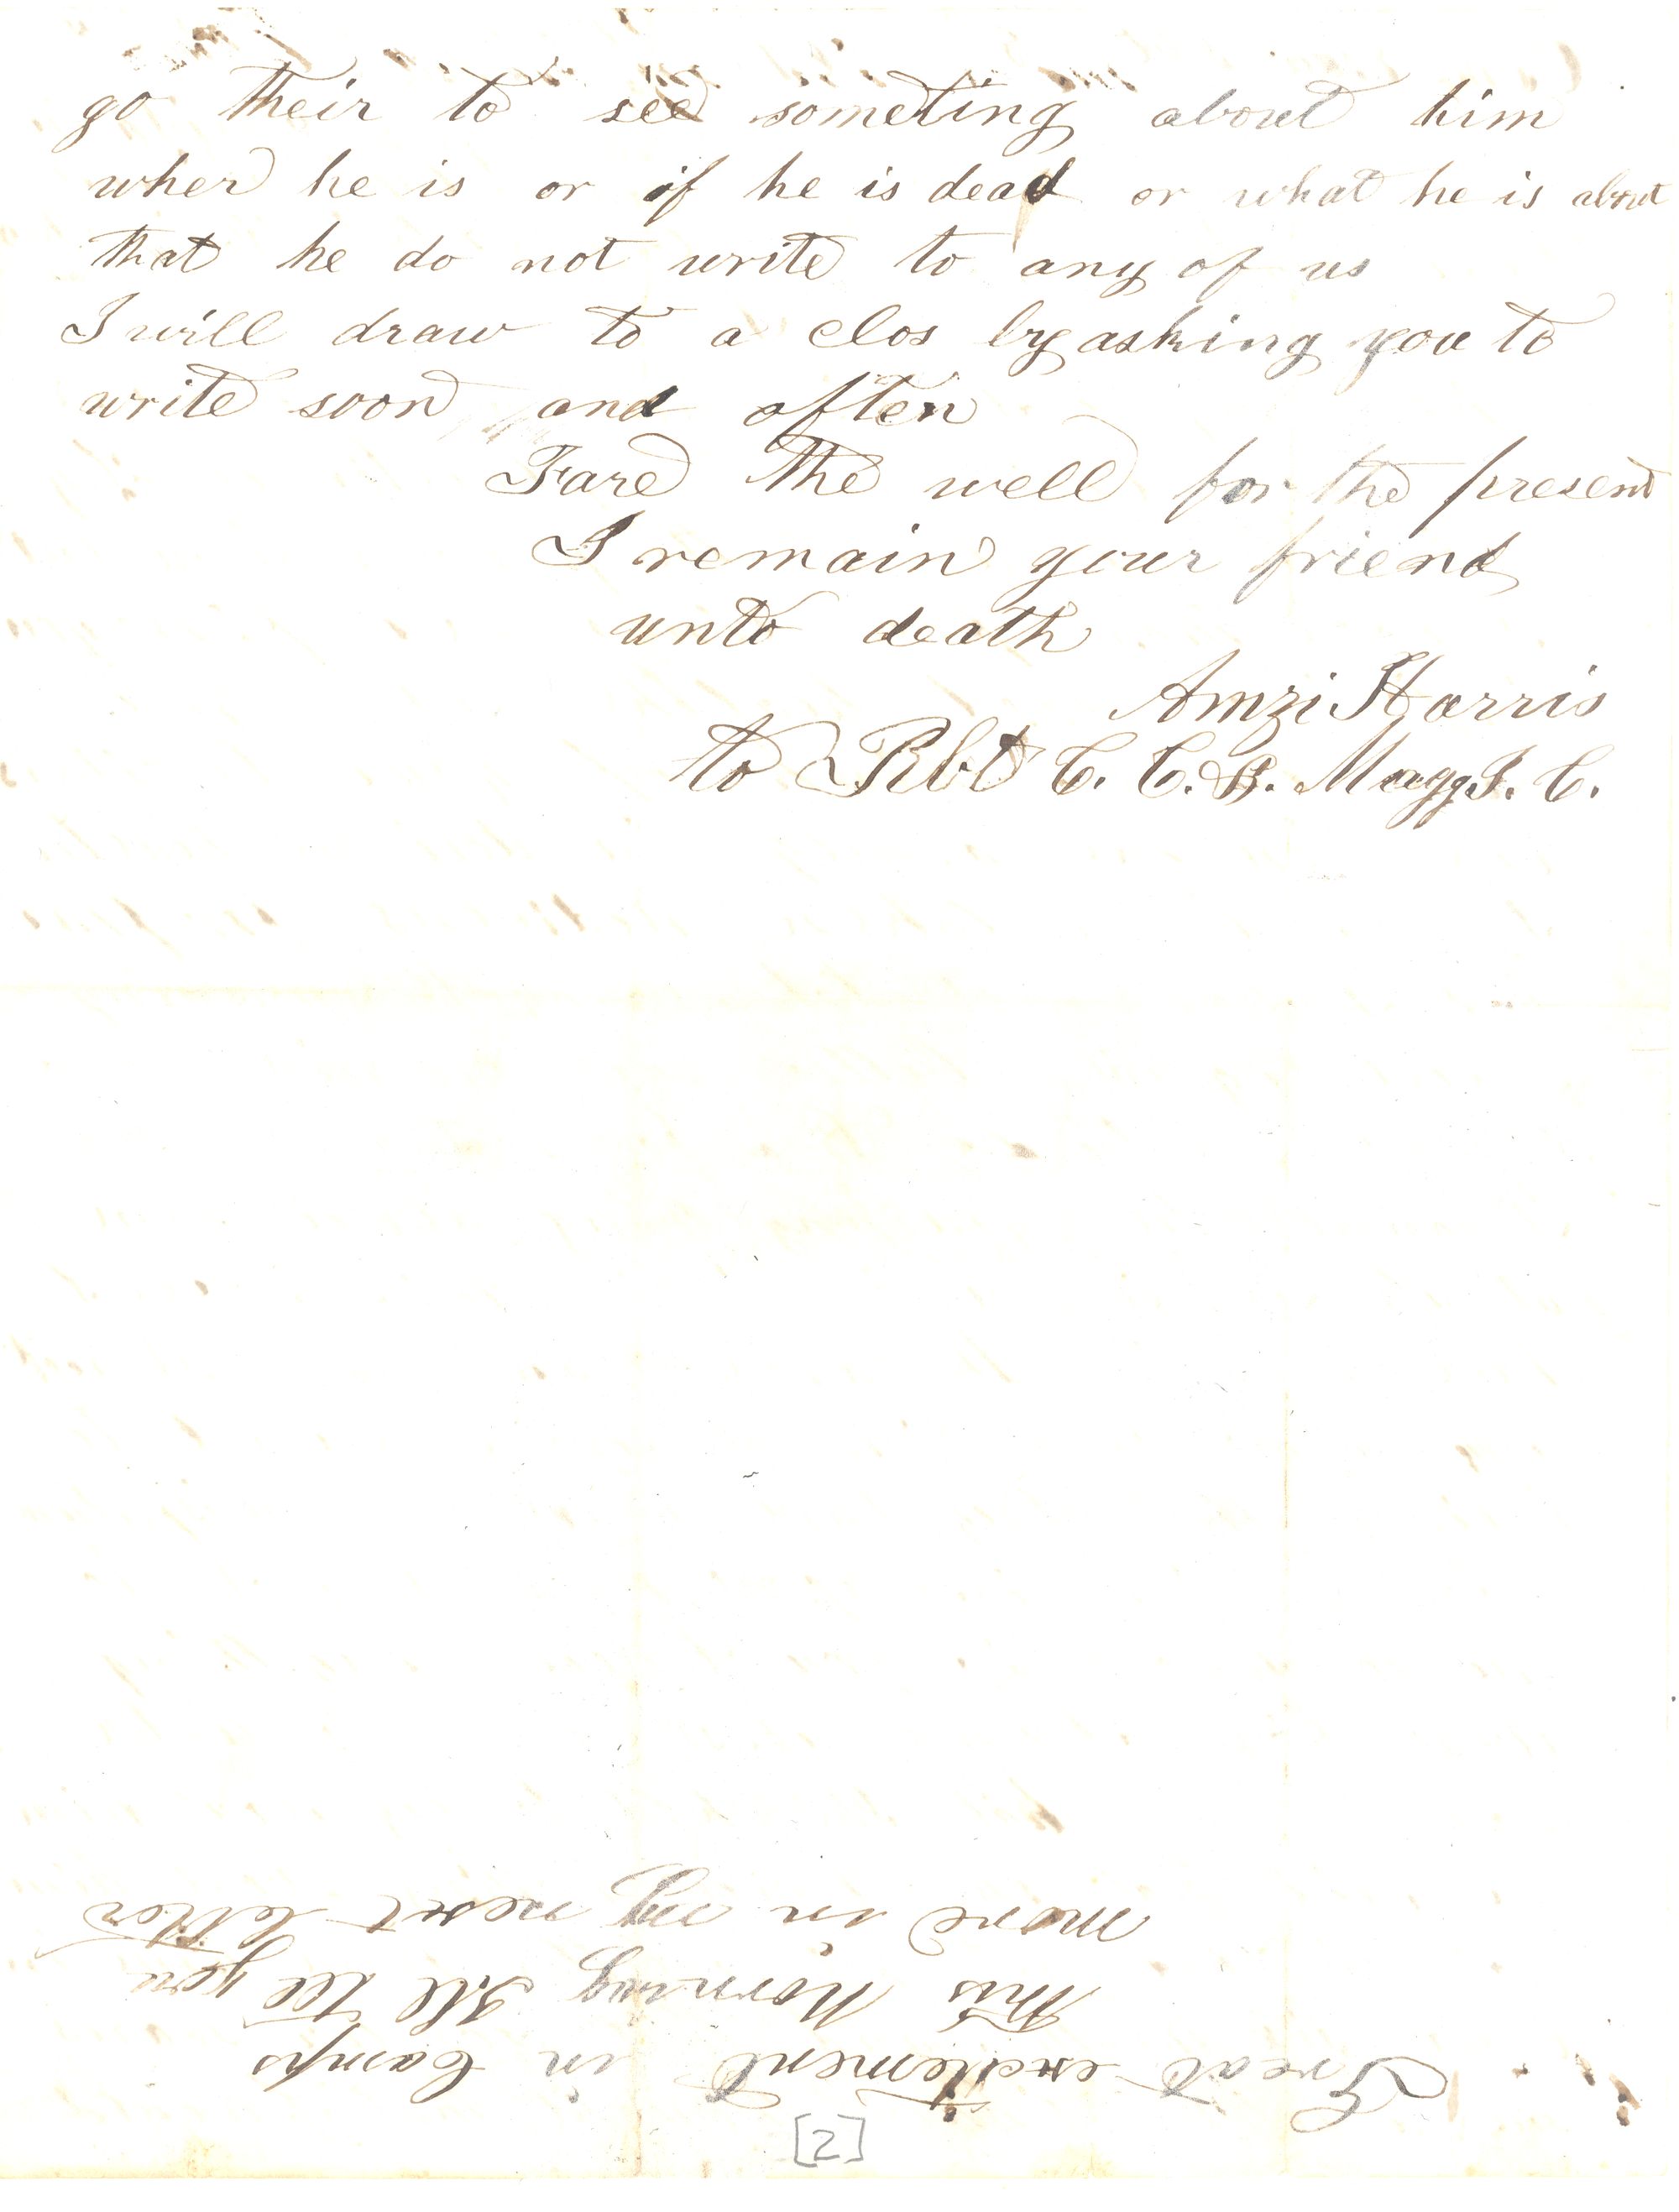 go their to see someting about him
wher he is or if he is dead or what he is about
that he do not write to any of us
I will draw to a clos by asking you to
write soon and often
Fare the well for the present
I remain your friend
unto death
Amzi Harris
to Rbt C. C. B. Magg I. C.
Great excitement in Camps
this Morning Ill tell you
more in my next letter
[2]